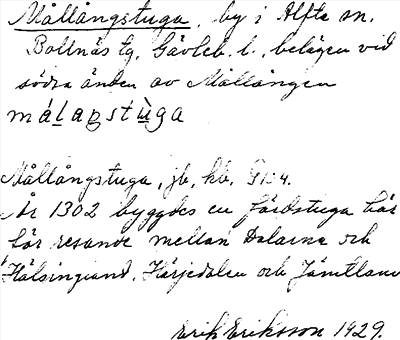 Mållångstuga, by i Alfta sn.
Bollnäs tg, Gävleb. l., belägen vid
södra änden av Mållången
málaŋstùga
Mållångstuga, jb, kb.
År 1302 byggdes en färdstuga här
för resande mellan Dalarna och
Hälsingland, Härjedalen och Jämtland
Erik Eriksson 1929.